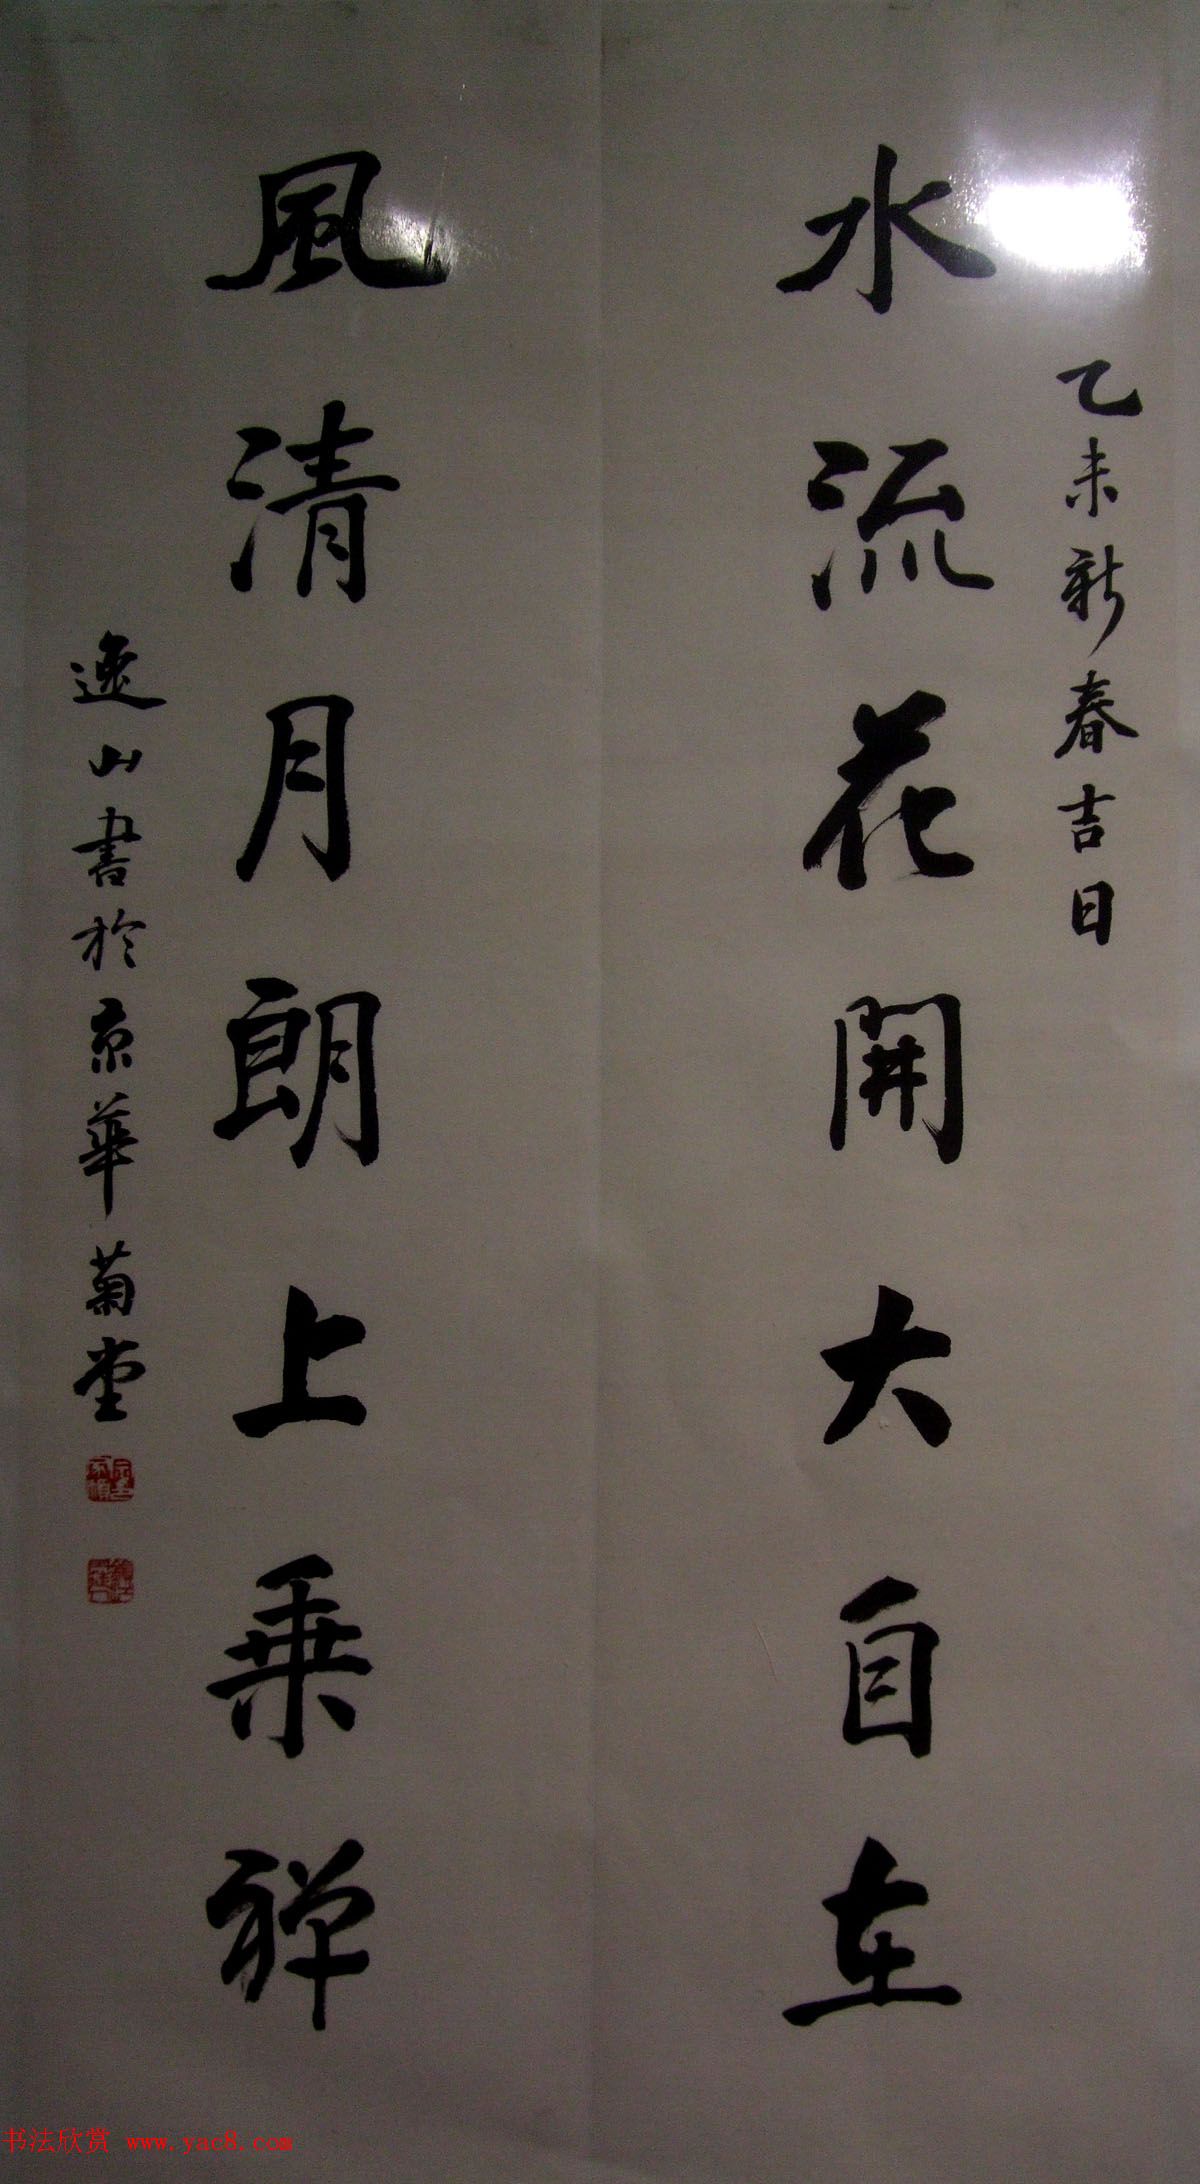 乙未新春吉日
水流花開大自在
風清月朗上乗禅
逸山書於京華菊堂
书法欣赏 www.yac8.com